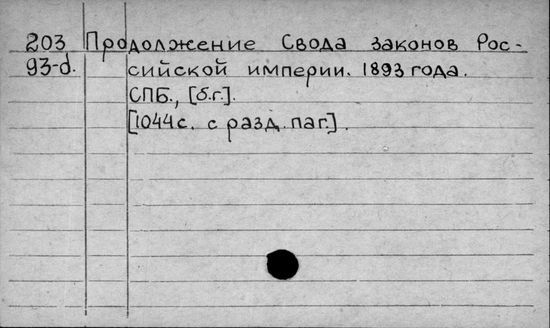 203 Продолжение Свода законов Рос-
93-d. сийской империи. 1893 года.
СПБ., [б.г.].
[1044 с. с разд. паг.].